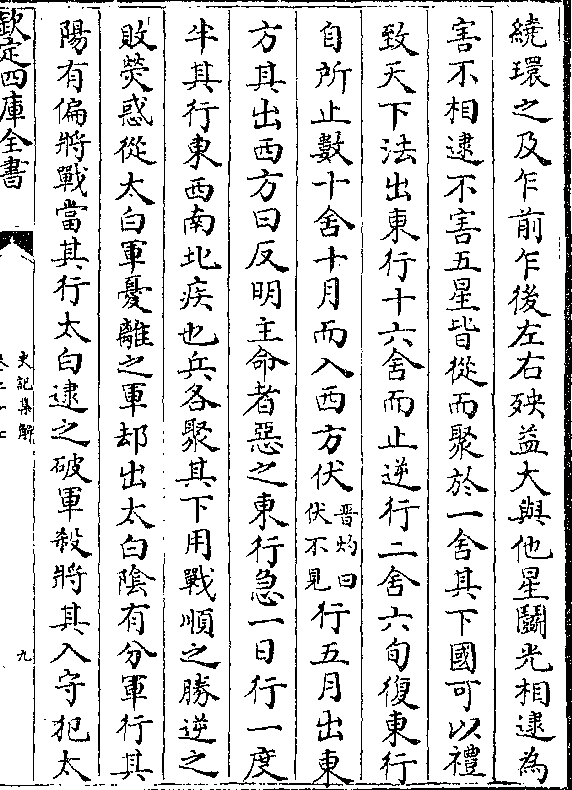 繞環之及乍前乍後左右殃益大與他星鬭光相逮為
害不相逮不害五星皆從而聚於一舍其下國可以禮
致天下法出東行十六舍而止逆行二舍六旬復東行
自所止數十舍十月而入西方伏晉灼曰伏不見行五月出東
方其出西方曰反明主命者惡之東行急一日行一度
半其行東西南北疾也兵各聚其下用戰順之勝逆之
敗熒惑從太白軍憂離之軍却出太白陰有分軍行其
陽有偏將戰當其行太白逮之破軍殺將其入守犯太
欽定四庫全書
史記集解
卷二十七
九